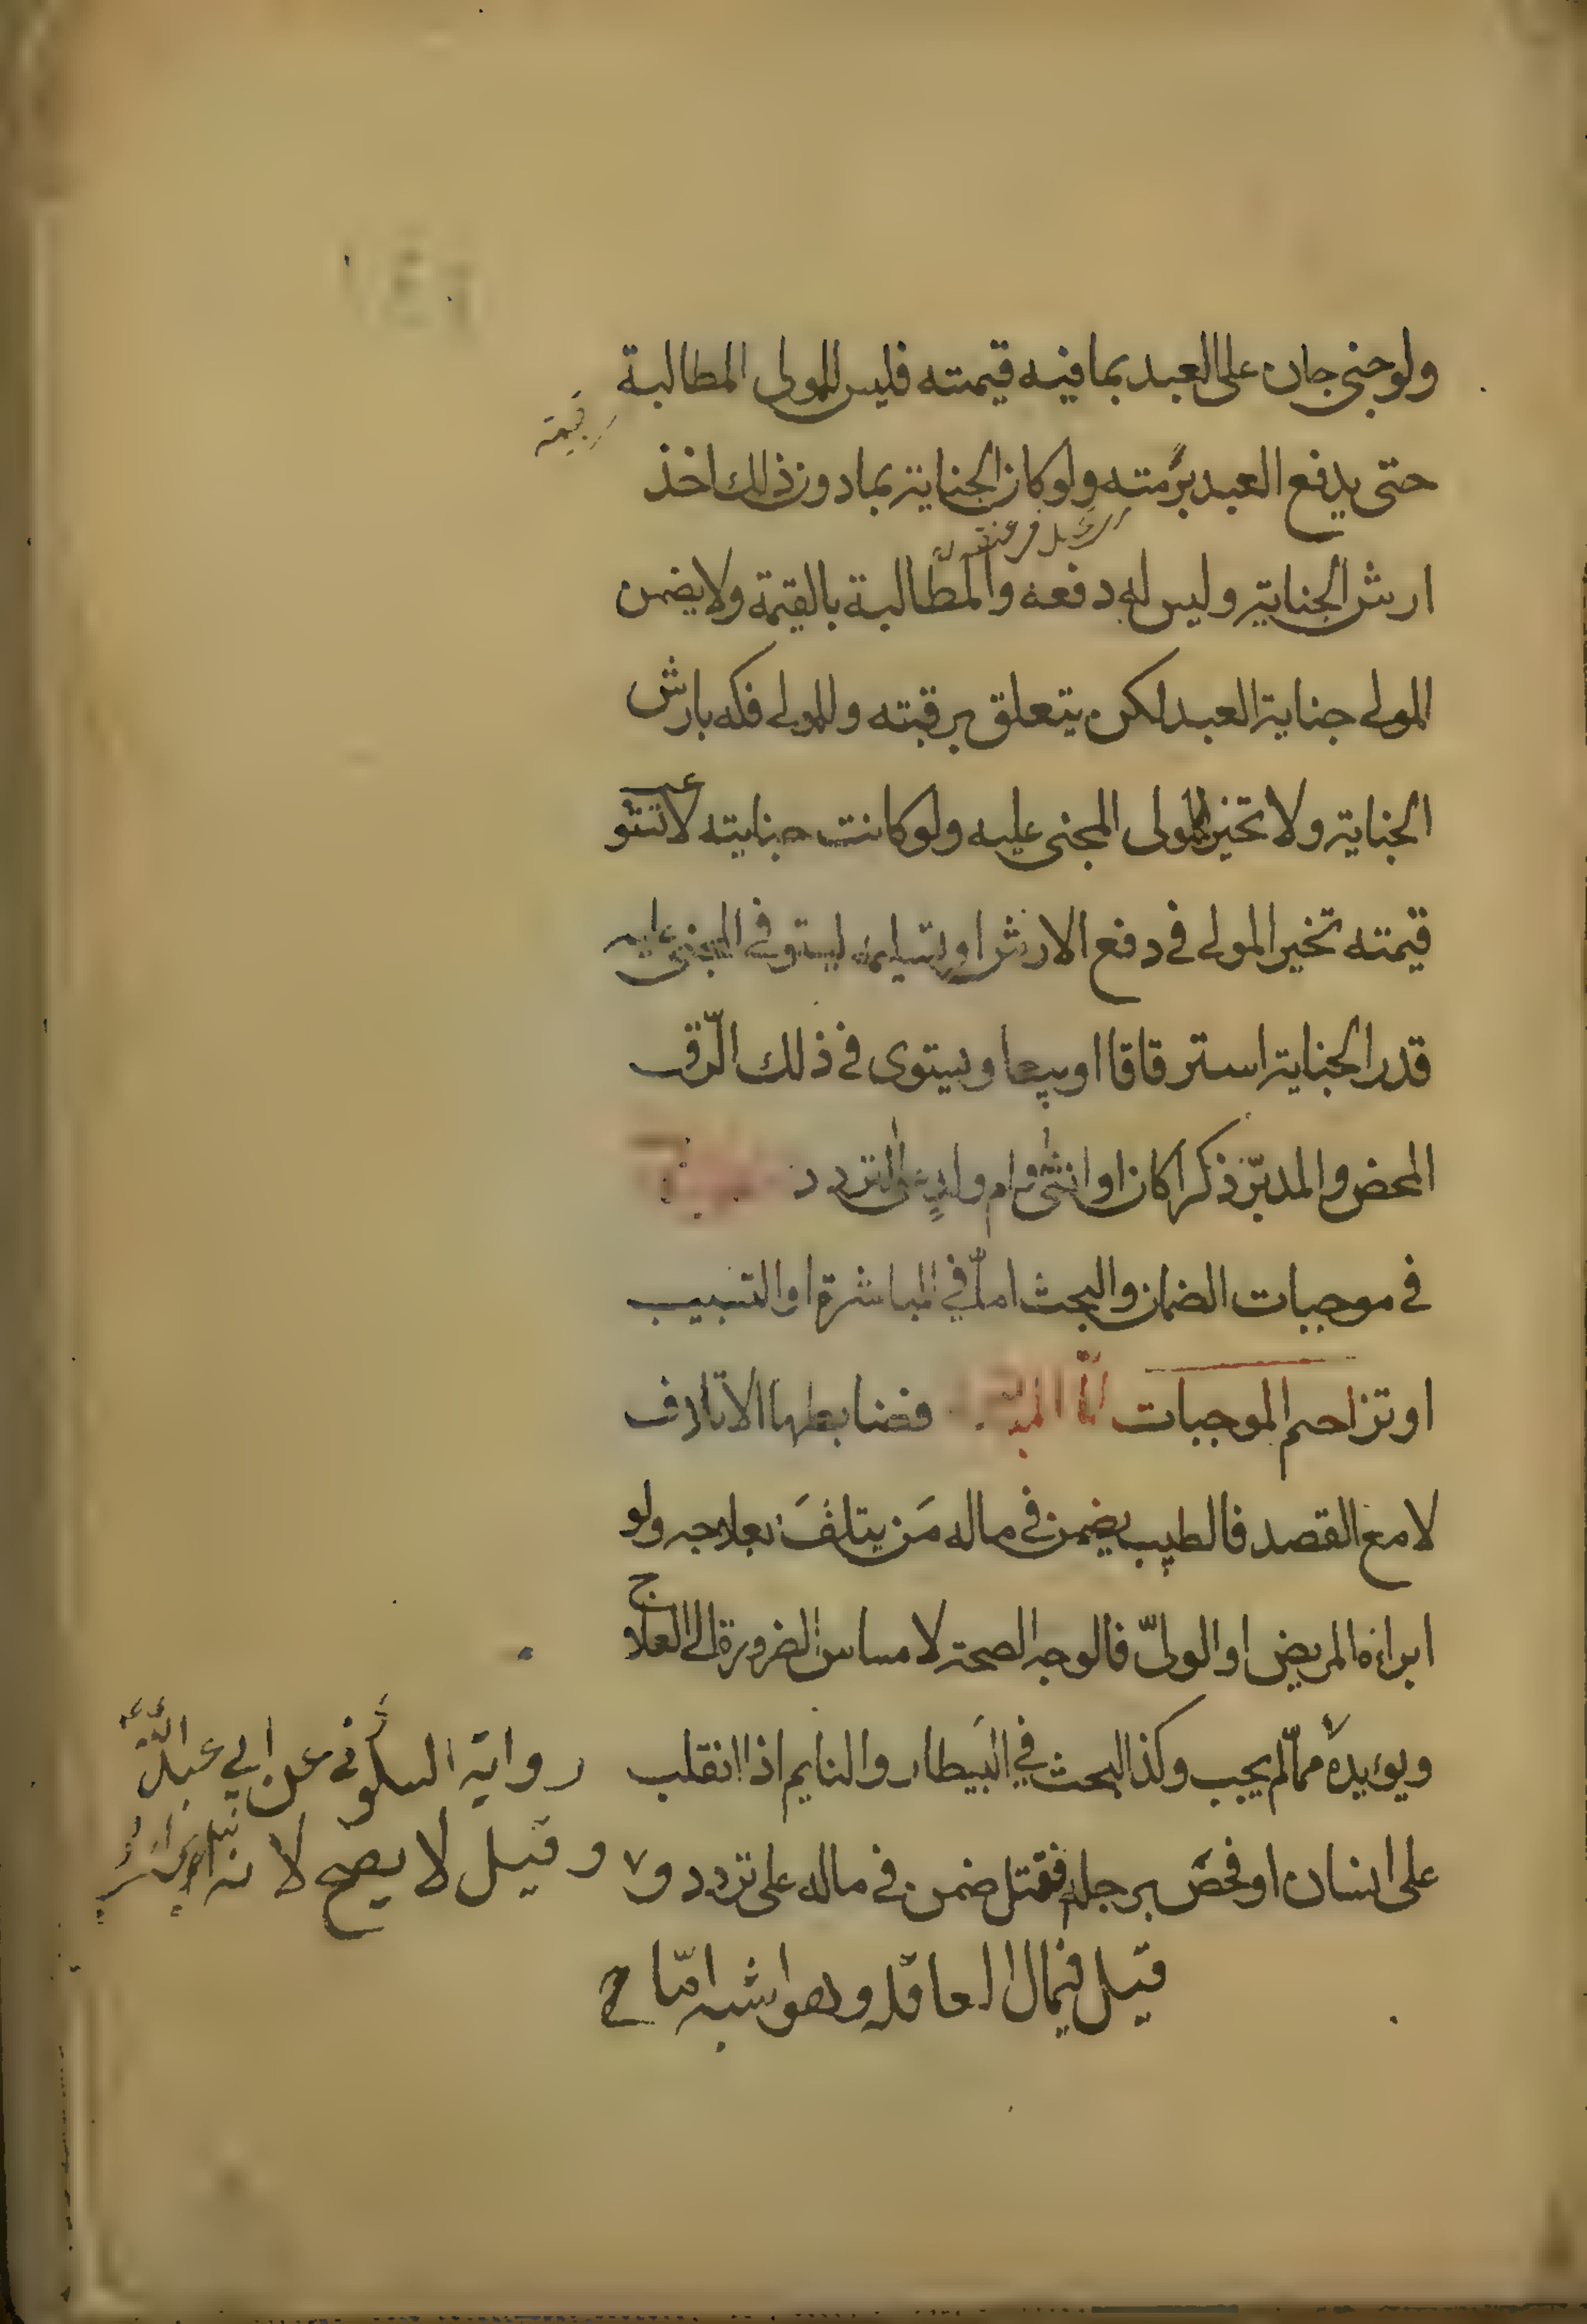 ولو جنى جان على العبد بما فيه قيمته فليس للمولى المطالبة
قيمته
حتى يدفع العبد برمّته ولو كان الجناية بما دون ذلك اخذ
ارش الجناية وليس له دفعه والمطالبة بالقيمة ولا يضمن
المولى جناية العبد لكن يتعلق برقبته وللمولى فكه بارش
الجناية ولا تخير لمولى المجنى عليه ولو كانت جنايته لا تستوعب
قيمته تخير المولى في دفع الارش او تسليمه ليستوفي المجنى عليه
قدر الجناية استرقاقا او بيعا ويستوى في ذلك الرّق
المحض والمدبّر ذكرا كان او انثى وام ولدٍ على التردد
في موجبات الضمان والبحث امّا في المباشرة او التسبيب
او تزاحم الموجبات امّا فضابطها الاتلاف
لا مع القصد فالطبيب يضمن في ماله مَن يتلفَ بعلاجه ولو
ابراءه المريض او الوليّ فالوجه الصحة لامساس الضرورة الى العلاج
ويؤيده رواية السكوني عن ابي عبد اللّه
وقيل لا يصح لانه ابراء
ممّا لم يجب وكذا البحث في البَيطار والنايم اذا انقلب
على انسان او فحصَ برجله فقتل ضمن في ماله على تردد و
قيل في مال العاقله وهو اشبه امّا